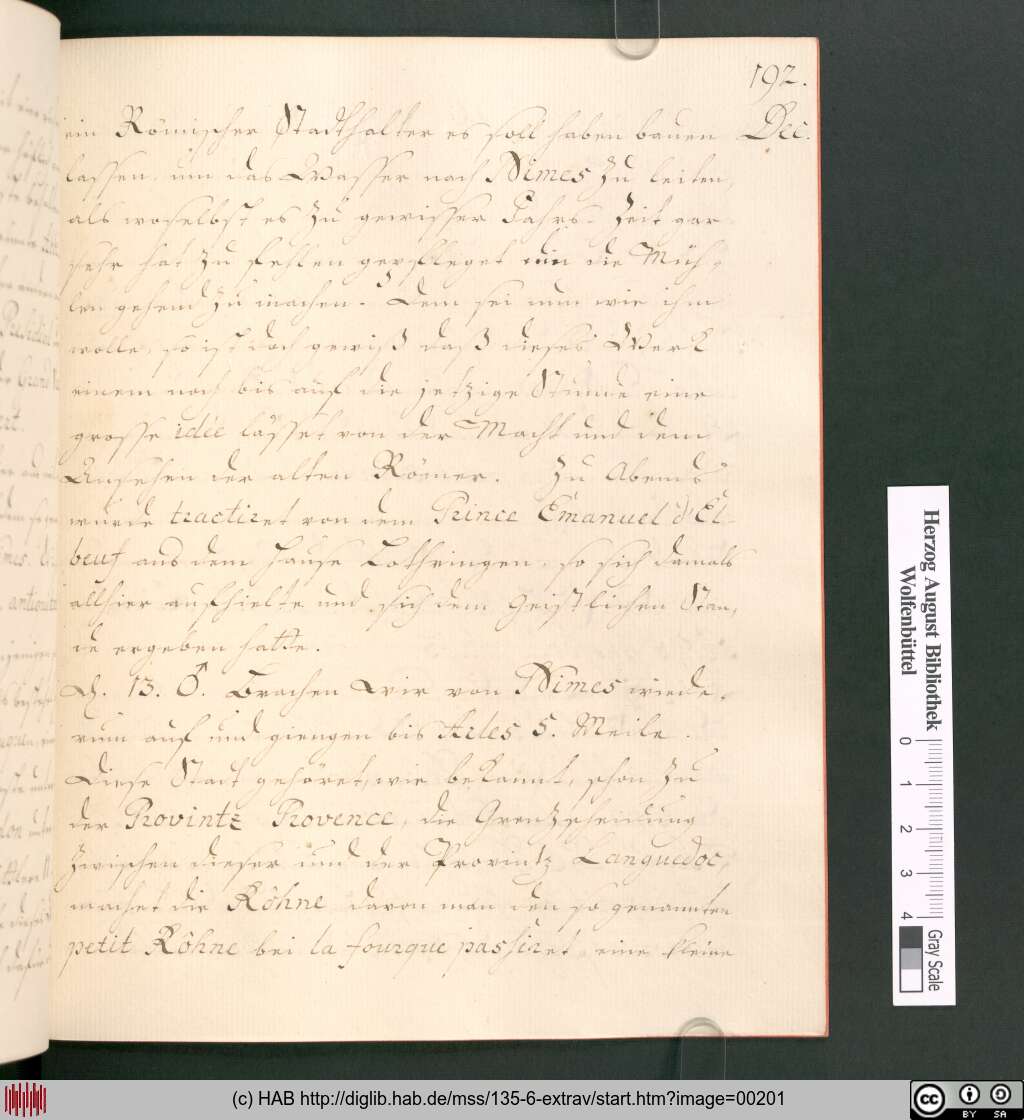 192.
ein Römischer Stadthalter es soll haben bauen Dec.
lassen, um das Wasser nach Nimes zu leiten,
als woselbst es zu gewisser Jahrs-Zeit gar
sehr hat zu fehlen gepfleget um die Müh-
len gehend zu machen. Dem sei nun wie ihm
wolle, so ist doch gewiß daß dieses Werk
einem noch bis auf die jetzige Stunde eine
grosse idée lässet von der Macht und dem
Ansehen der alten Römer. Zu Abends
wurde tractiret von dem Prince Emanuel d'El-
beuf aus dem Hause Lothringen, so sich damals
allhier aufhielte und sich dem Geistlichen Stan-
de ergeben hatte.
D. 13. ♂. Brachen Wir von Nimes wiede-
rum auf und giengen bis Arles 5. Meile.
Diese Stadt gehöret, wie bekannt, schon zu
der Provintz Provence, die Grenzscheidung
zwischen dieser und der Provintz Languedoc,
machet die Rôhne davon man den so genannten
petit Rôhne bei la fourque passiret, eine kleine
Herzog August Bibliothek
Wolfenbüttel
0 1 2 3 4
Gray Scale
(c) HAB http://diglib.hab.de/mss/135-6-extrav/start.htm?image=00201
cc BY SA